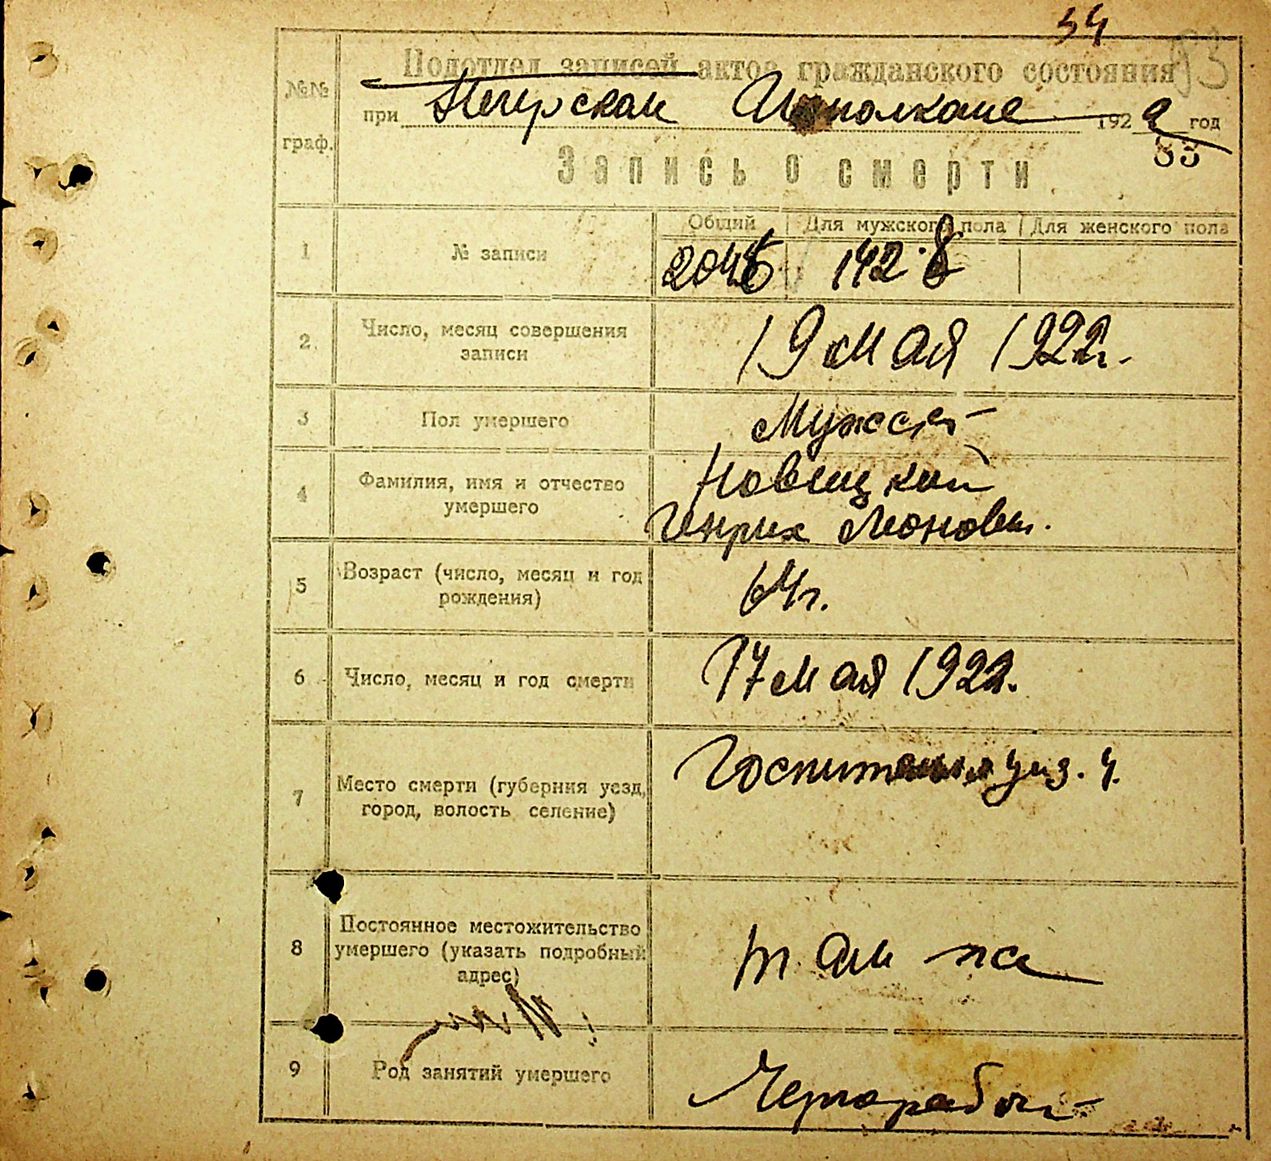 54
93
№№ граф.
Подотдел записей актов гражданского состояния
при Печерском Исполкоме 1922 год
85
Запись о смерти
Общий Для мужского пола Для женского пола
1 № записи 2045 1428
2. Число, месяц совершения записи 19 мая 1922 г.
3 Пол умершего Мужск.
4 Фамилия, имя и отчество умершего Новицкий
Генрих Леонов.
5 Возраст (число, месяц и год рождения) 64 г.
6 Число, месяц и год смерти 17 мая 1922.
7 Место смерти (губерния уезд, город, волость селение) Госпиталь
8 Постоянное местожительство умершего (указать подробный адрес) там же
9 Род занятий умершего Чернорабоч.